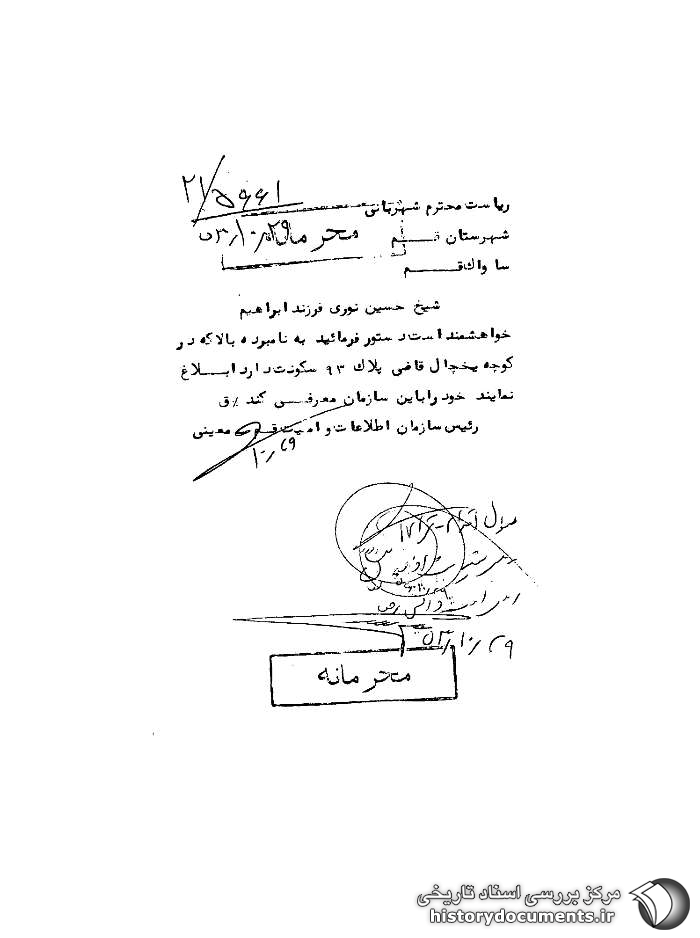 ۲۱/۵۶۶۱
ریاست محترم شهربانی
شهرستان قم
محرمانه
۵۳/۱۰/۲۹
ساواک قم
شیخ حسین نوری فرزند ابراهیم
خواهشمند است دستور فرمائید به نامبرده بالا که در
کوچه یخچال قاضی پلاک ۹۳ سکونت دارد ابلاغ
نمایند خود را باین سازمان معرفی کند /ق
رئیس سازمان اطلاعات و امنیت قم معینی
۱۰/۲۹
۵۳/۱۰/۲۹
محرمانه
مرکز بررسی اسناد تاریخی
historydocuments.ir